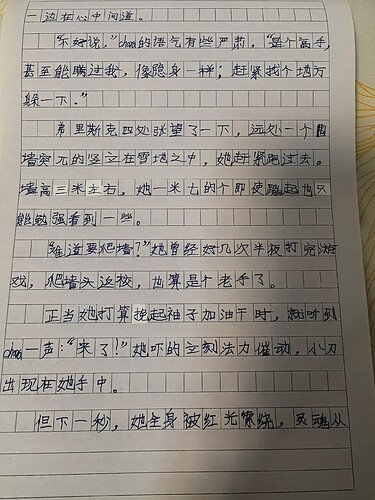 一边在心中问道。
"不好说，"chad的语气有些严肃，"是个高手，
甚至能瞒过我，像隐身一样；赶紧找个地方
躲一下。"
弗里斯克四处张望了一下，远处一个
墙突兀的竖立在雪地之中，她赶紧跑过去。
墙高三米左右，她一米七的个即使跳起也只
能勉强看到一些。
"难道要爬墙？"她曾经好几次半夜打完游
戏，爬墙头返校，也算是个老手了。
正当她打算挽起袖子加油干时，就听到
一声："来了！"她吓的立刻法力催动，小刀
出现在她手中。
但下一秒，她全身被红光萦绕，灵魂从